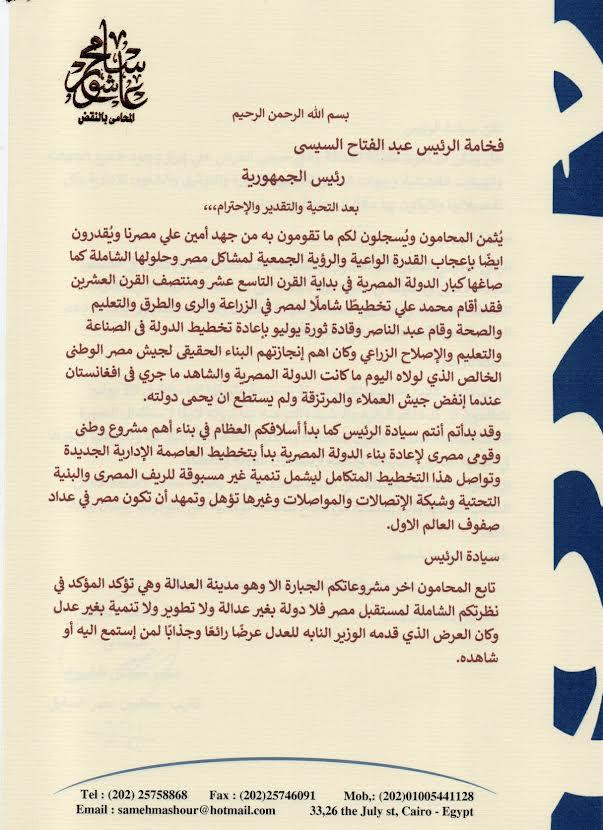 سامح عاشور
المحامى بالنقض
بسم الله الرحمن الرحيم
فخامة الرئيس عبد الفتاح السيسى
رئيس الجمهورية
بعد التحية والتقدير والإحترام،،،
يُثمن المحامون ويُسجلون لكم ما تقومون به من جهد أمين علي مصرنا ويُقدرون
ايضًا بإعجاب القدرة الواعية والرؤية الجمعية لمشاكل مصر وحلولها الشاملة كما
صاغها كبار الدولة المصرية في بداية القرن التاسع عشر ومنتصف القرن العشرين
فقد أقام محمد علي تخطيطًا شاملًا لمصر في الزراعة والرى والطرق والتعليم
والصحة وقام عبد الناصر وقادة ثورة يوليو بإعادة تخطيط الدولة فى الصناعة
والتعليم والإصلاح الزراعي وكان اهم إنجازتهم البناء الحقيقى لجيش مصر الوطنى
الخالص الذي لولاه اليوم ما كانت الدولة المصرية والشاهد ما جري فى افغانستان
عندما إنفض جيش العملاء والمرتزقة ولم يستطع ان يحمى دولته.
وقد بدأتم أنتم سيادة الرئيس كما بدأ أسلافكم العظام في بناء أهم مشروع وطنى
وقومى مصرى لإعادة بناء الدولة المصرية بدأ بتخطيط العاصمة الإدارية الجديدة
وتواصل هذا التخطيط المتكامل ليشمل تنمية غير مسبوقة للريف المصرى والبنية
التحتية وشبكة الإتصالات والمواصلات وغيرها تؤهل وتمهد أن تكون مصر في عداد
صفوف العالم الاول.
سيادة الرئيس
تابع المحامون اخر مشروعاتكم الجبارة الا وهو مدينة العدالة وهي تؤكد المؤكد في
نظرتكم الشاملة لمستقبل مصر فلا دولة بغير عدالة ولا تطوير ولا تنمية بغير عدل
وكان العرض الذي قدمه الوزير النابه للعدل عرضًا رائعًا وجذابًا لمن إستمع اليه أو
شاهده.
Tel : (202) 25758868 Fax : (202)25746091 Mob,: (202)01005441128
Email : samehmashour@hotmail.com 33,26 the July st, Cairo - Egypt